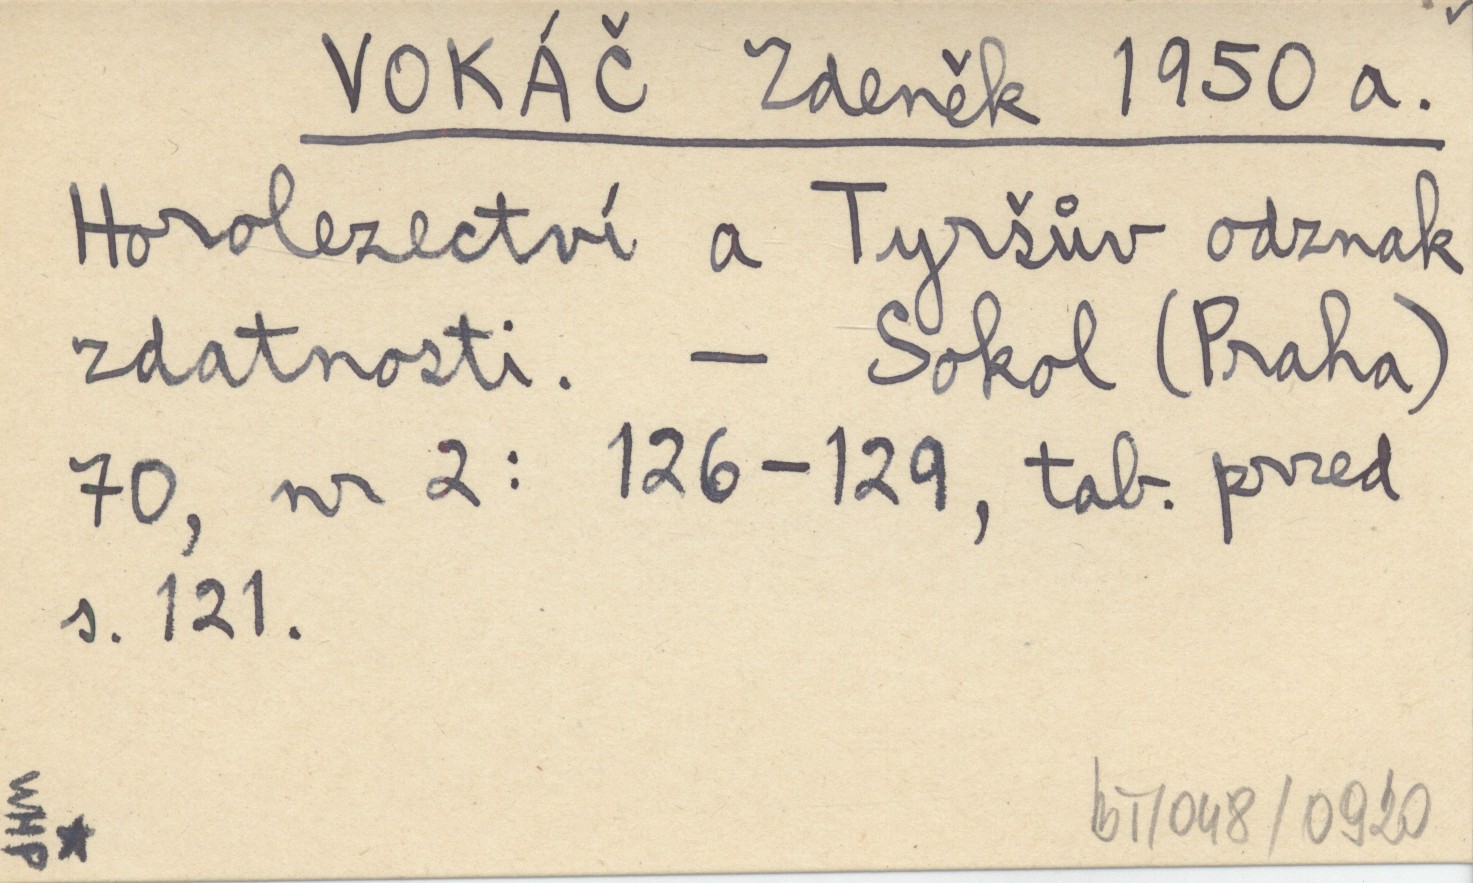 VOKÁČ Zdeněk 1950 a.
Horolezectví a Tyršův odznak
zdatnosti. — Sokol (Praha)
70, nr 2: 126-129, tab. przed
s. 121.
WHP
bT/048/0920